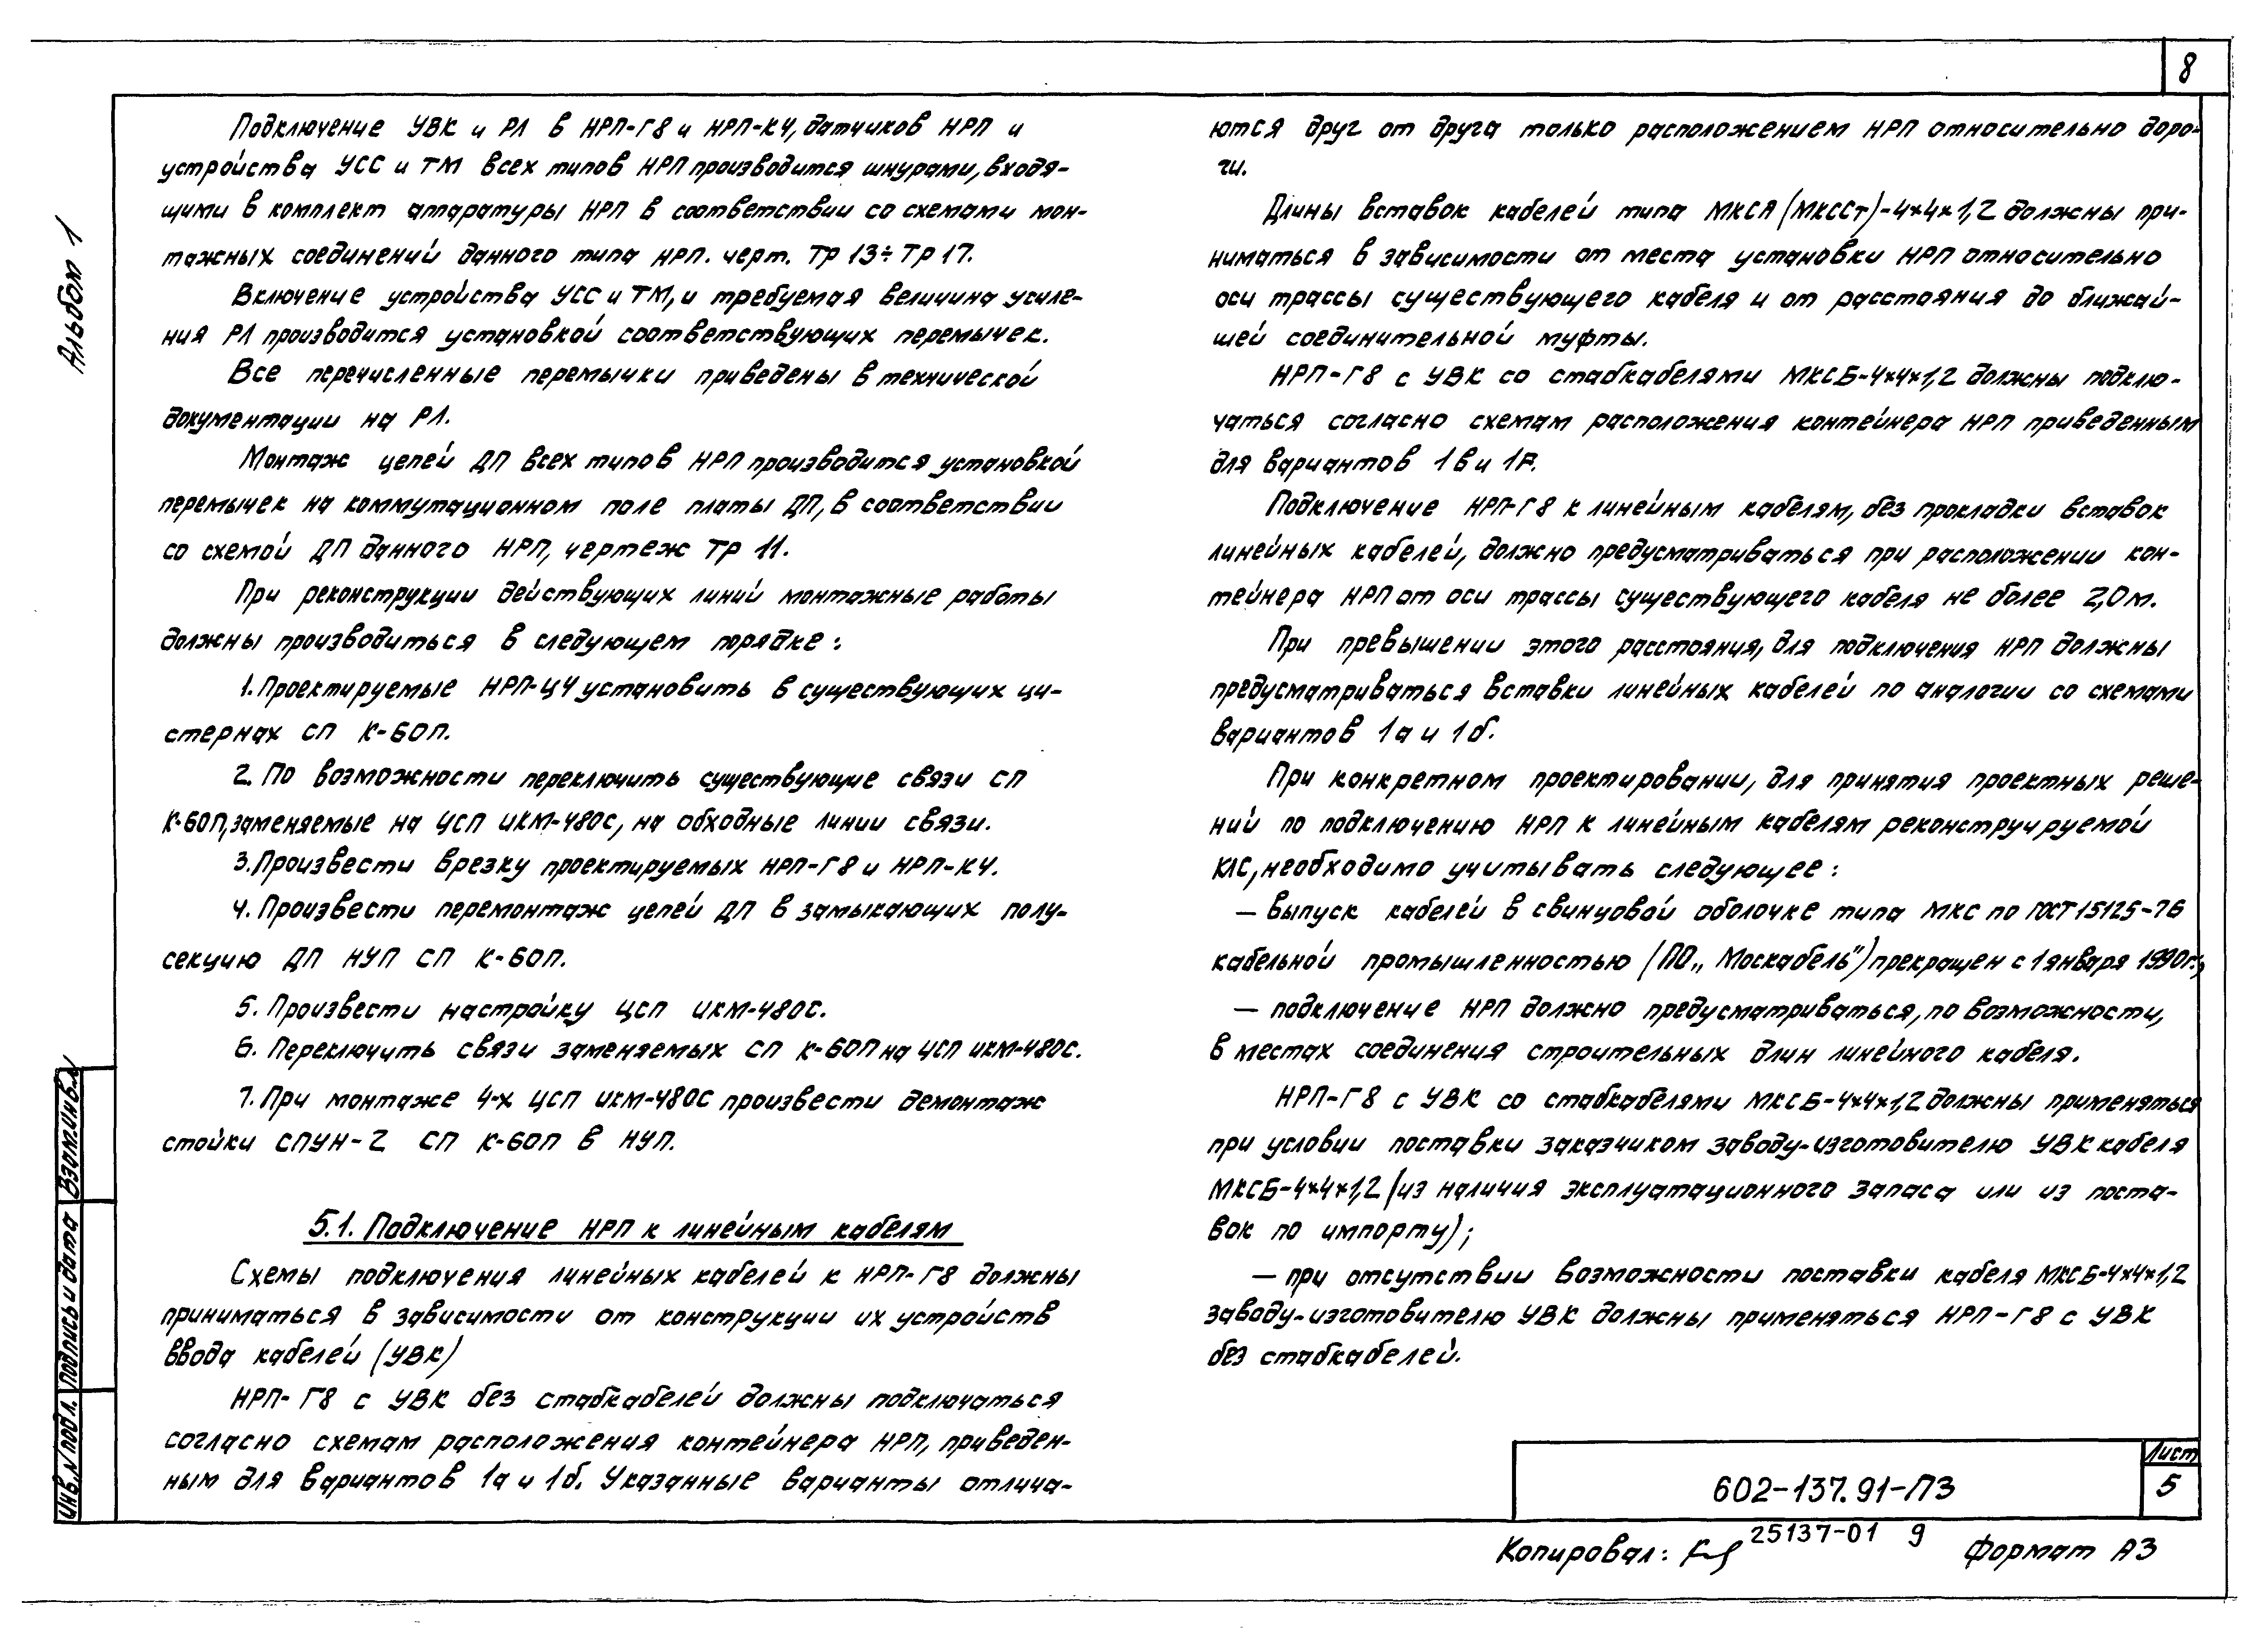 8
Альбом 1
Подключение УВК и РЛ в НРП-Г8 и НРП-К4, датчиков НРП и
устройства УСС и ТМ всех типов НРП производится шнурами, входя-
щими в комплект аппаратуры НРП в соответствии со схемами мон-
тажных соединений данного типа НРП. черт. ТР 13÷ТР 17.
Включение устройства УСС и ТМ, и требуемая величина усиле-
ния РЛ производится установкой соответствующих перемычек.
Все перечисленные перемычки приведены в технической
документации на РЛ.
Монтаж цепей ДП всех типов НРП производится установкой
перемычек на коммутационном поле платы ДП, в соответствии
со схемой ДП данного НРП, чертеж ТР 11.
При реконструкции действующих линий монтажные работы
должны производиться в следующем порядке:
1. Проектируемые НРП-Ц4 установить в существующих ци-
стернах СП К-60П.
2. По возможности переключить существующие связи СП
К-60П, заменяемые на ЦСП ИКМ-480С, на обходные линии связи.
3. Произвести врезку проектируемых НРП-Г8 и НРП-К4.
4. Произвести перемонтаж цепей ДП в замыкающих полу-
секцию ДП НУП СП К-60П.
5. Произвести настройку ЦСП ИКМ-480С.
6. Переключить связи заменяемых СП К-60П на ЦСП ИКМ-480С.
7. При монтаже 4-х ЦСП ИКМ-480С произвести демонтаж
стойки СПУН-2 СП К-60П в НУП.
5.1. Подключение НРП к линейным кабелям
Схемы подключения линейных кабелей к НРП-Г8 должны
приниматься в зависимости от конструкции их устройств
ввода кабелей (УВК)
НРП-Г8 с УВК без стабкабелей должны подключаться
согласно схемам расположения контейнера НРП, приведен-
ным для вариантов 1а и 1б. Указанные варианты отлича-
ются друг от друга только расположением НРП относительно доро-
ги.
Длины вставок кабелей типа МКСА (МКССт)-4×4×1,2 должны при-
ниматься в зависимости от места установки НРП относительно
оси трассы существующего кабеля и от расстояния до ближай-
шей соединительной муфты.
НРП-Г8 с УВК со стабкабелями МКСБ-4×4×1,2 должны подклю-
чаться согласно схемам расположения контейнера НРП приведенным
для вариантов 1в и 1г.
Подключение НРП-Г8 к линейным кабелям, без прокладки вставок
линейных кабелей, должно предусматриваться при расположении кон-
тейнера НРП от оси трассы существующего кабеля не более 2,0м.
При превышении этого расстояния, для подключения НРП должны
предусматриваться вставки линейных кабелей по аналогии со схемами
вариантов 1а и 1б.
При конкретном проектировании, для принятия проектных реше-
ний по подключению НРП к линейным кабелям реконструируемой
КЛС, необходимо учитывать следующее:
— выпуск кабелей в свинцовой оболочке типа МКС по ГОСТ 15125-76
кабельной промышленностью (ПО „Москабель") прекращен с 1 января 1990г.;
— подключение НРП должно предусматриваться, по возможности,
в местах соединения строительных длин линейного кабеля.
НРП-Г8 с УВК со стабкабелями МКСБ-4×4×1,2 должны применяться
при условии поставки заказчиком заводу-изготовителю УВК кабеля
МКСБ-4×4×1,2 (из наличия эксплуатационного запаса или из поста-
вок по импорту);
— при отсутствии возможности поставки кабеля МКСБ-4×4×1,2
заводу-изготовителю УВК должны применяться НРП-Г8 с УВК
без стабкабелей.
Инв.N подл. Подпись и дата Взам.инв.N
602-137.91-ПЗ
Лист
5
Копировал: 25137-01 9 Формат А3